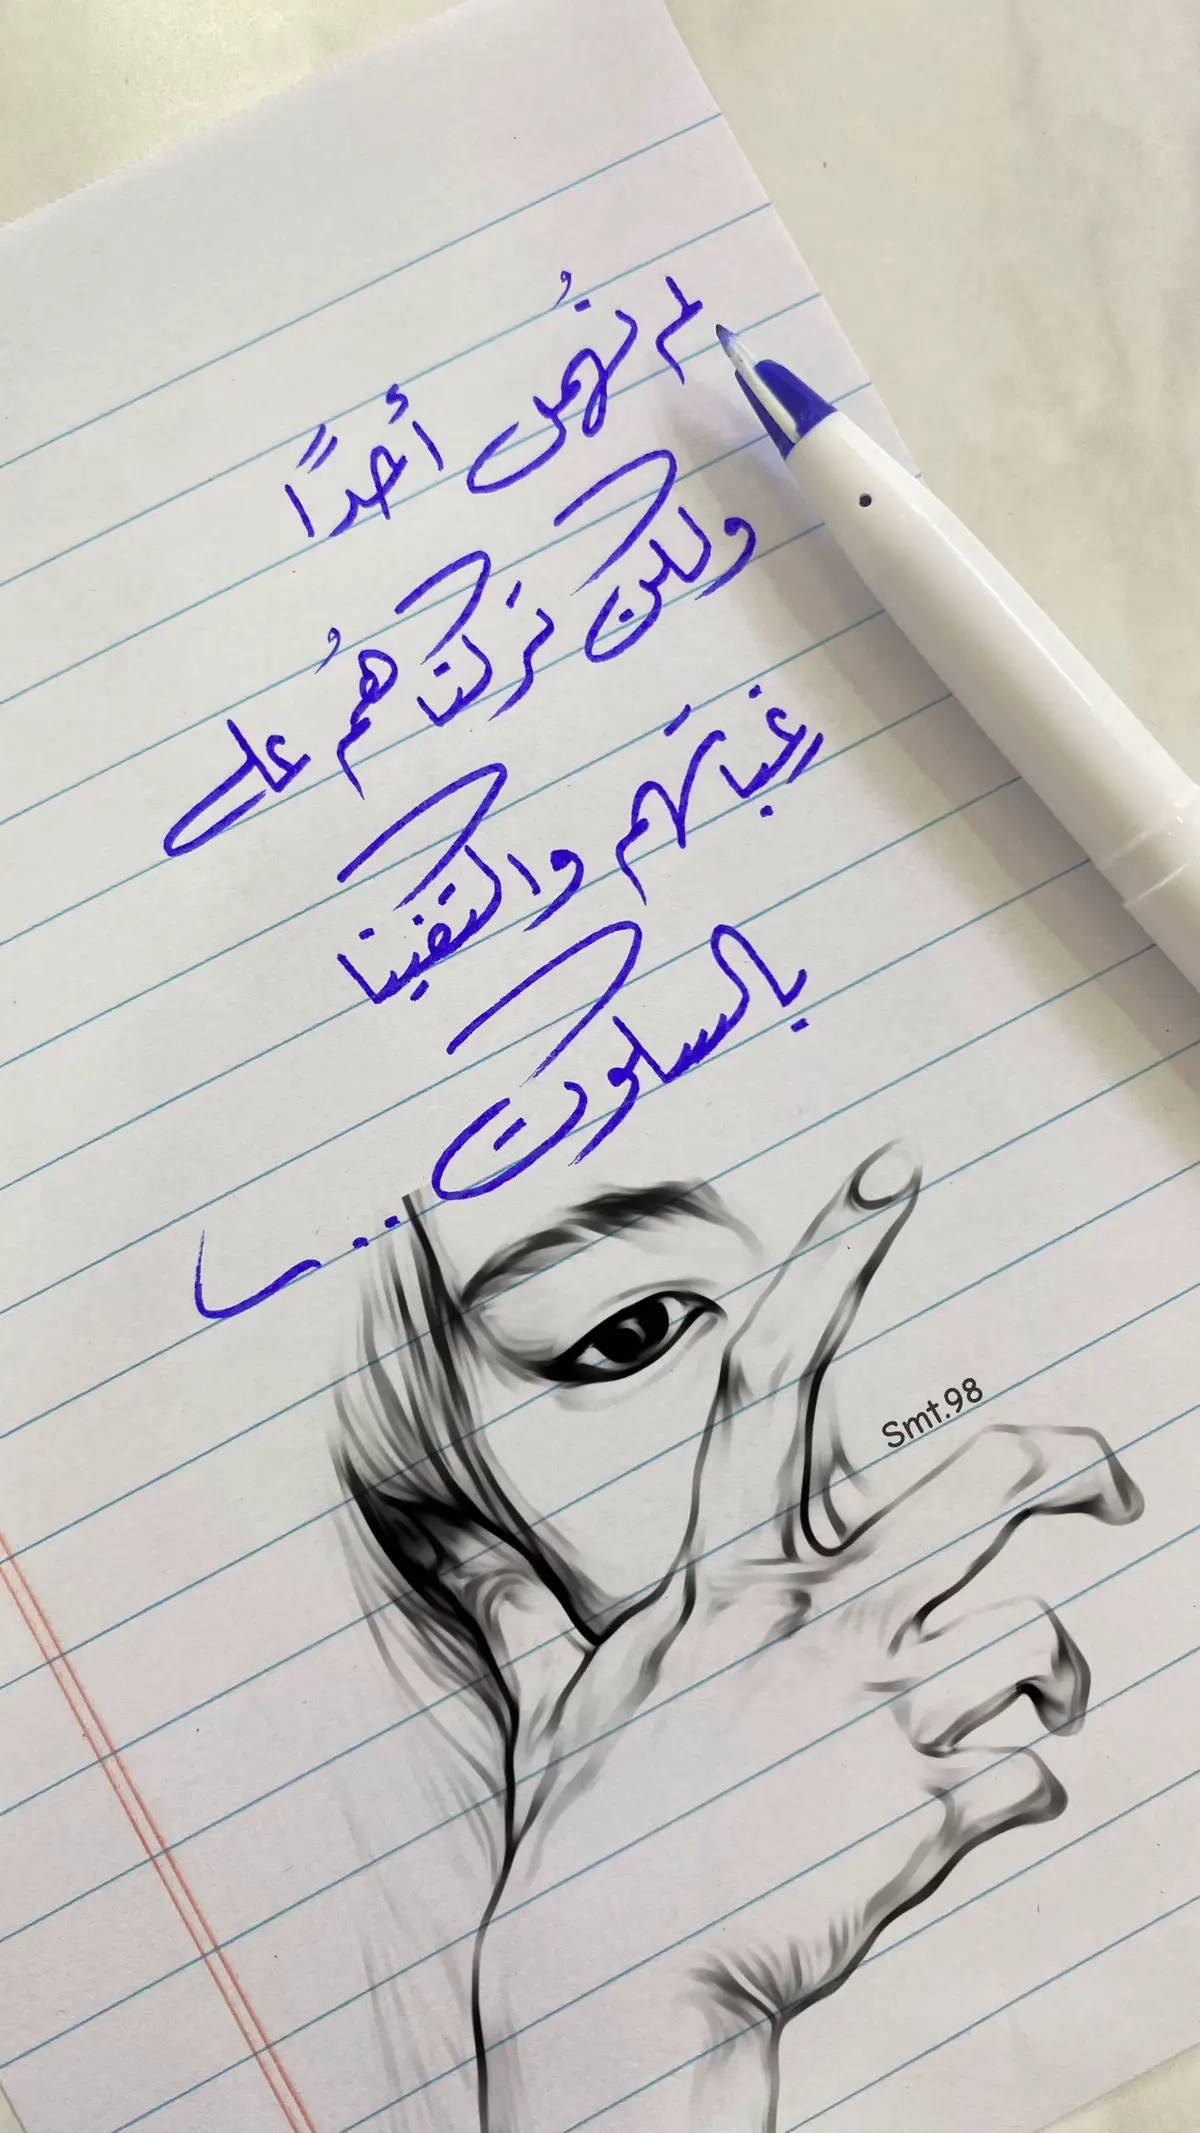 لم نُهمل أحدًا
ولكن تركناهُم على
رغباتهم واكتفينا
بالسكوت...
Smt.98